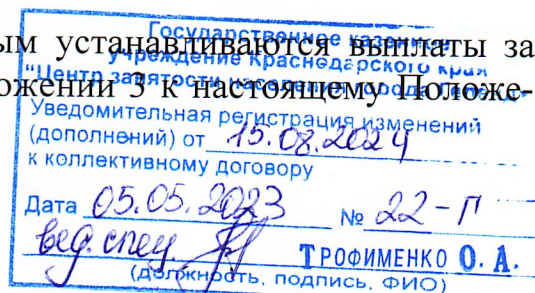 ым устанавливаются выплаты за
ожении 3 к настоящему Положе-
Государственное казенное
учреждение Краснодарского края
"Центр занятости населения города
Уведомительная регистрация изменений
(дополнений) от 15.08.2024
к коллективному договору
Дата 05.05.2023 № 22-П
вед. спец. ТРОФИМЕНКО О. А.
(должность, подпись, ФИО)